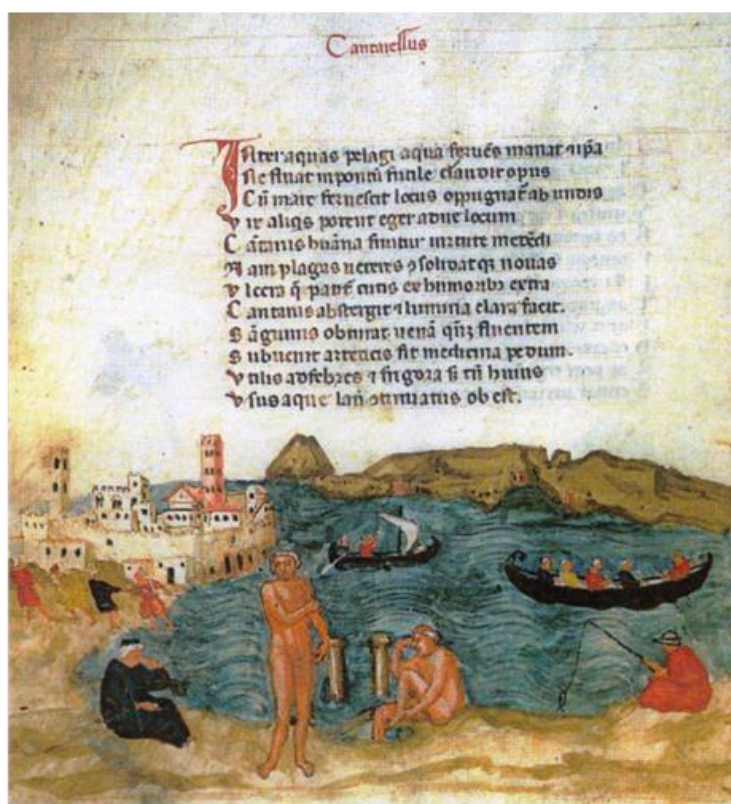 Cantarellus
Inter aquas pelagi aqua feruēs manat ⁊ ip̄a
Ne fluat in pontū fictile claudit opus
Cū mare feruescit locus oppugnat ab undis
Vix aliq̄s poterit eger adire locum
huāna uirtute medēdi
Nam plagas ueteres ꝯsolidatqꝫ nouas
Vlcera q̄ patēt cutis ex humoribꝫ extra
abstergit ⁊ lumina clara facit.
Sāguinis obturat uenā fluentem
Subuenit arteticis fit medicina pedum.
Vtilis ad febres ⁊ frigora si tn̄ huius
Vsus aque obest.